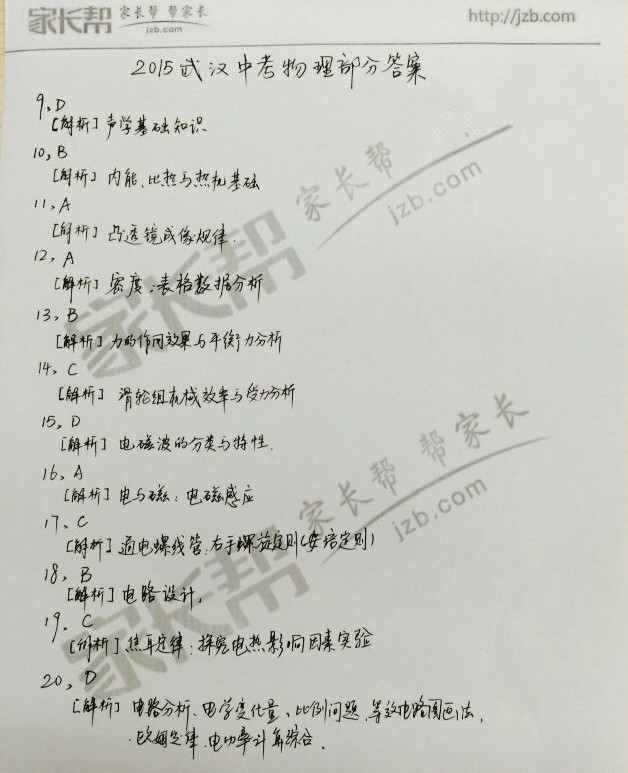 家长帮 家长帮 帮家长 jzb.com http://jzb.com
2015武汉中考物理部分答案
9、D
[解析] 声学基础知识
10、B
[解析] 内能、比热与热机基础
11、A
[解析] 凸透镜成像规律.
12、A
[解析] 密度：表格数据分析
13、B
[解析] 力的作用效果与平衡力分析
14、C
[解析] 滑轮组机械效率与受力分析
15、D
[解析] 电磁波的分类与特性.
16、A
[解析] 电与磁：电磁感应
17、C
[解析] 通电螺线管：右手螺旋定则(安培定则)
18、B
[解析] 电路设计,
19、C
[解析] 焦耳定律：探究电热影响因素实验
20、D
[解析] 电路分析、电学变化量、比例问题、等效电路图画法,
欧姆定律、电功率计算综合.
家长帮 家长帮 jzb.com
家长帮 家长帮 帮家长 jzb.com